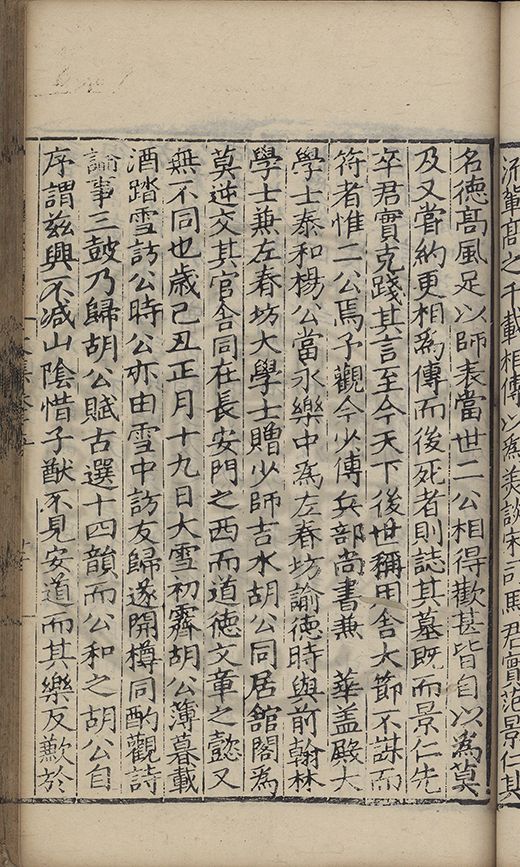 流輩高之千載相傳以為美談宋司馬君實范景仁其
名徳髙風足以師表當世二公相得歡甚皆自以為莫
及又嘗約更相為傳而後死者則誌其墓既而景仁先
卒君實克踐其言至今天下後世稱用舍大節不謀而
符者惟二公焉予觀今少傅兵部尚書兼 華盖殿大
學士泰和楊公當永樂中為左春坊諭徳時與前翰林
學士兼左春坊大學士贈少師吉水胡公同居館閣為
莫逆交其官舎同在長安門之西而道徳文章之懿又
無不同也歳己丑正月十九日大雪初霽胡公薄暮載
酒踏雪訪公時公亦由雪中訪友歸遂開樽同酌觀詩
論事三鼓乃歸胡公賦古選十四韻而公和之胡公自
序謂兹興不减山陰惜子猷不見安道而其樂反歉於